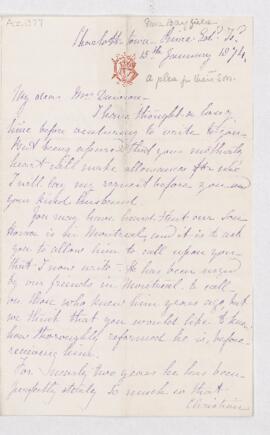 A.Z. 1877
Mrs Bayfield
Charlotte Town - Prince Edd. Id.
15th January 1874.
a plea for their son.
My dear Mrs Dawson -
I have thought a long
time before venturing to write to you
but being assured that your motherly
heart will make allowances for me
I will lay my request before you and
your kind husband.
You may have heard that our Son
Horace is in Montreal, and it is to ask
you to allow him to call upon you
that I now write - He has been urged
by our friends in Montreal to call
on those who knew him years ago, but
we think that you would like to know
how thoroughly reformed he is, before
receiving him.
For twenty two years he has been
perfectly steady so much so that
Christian